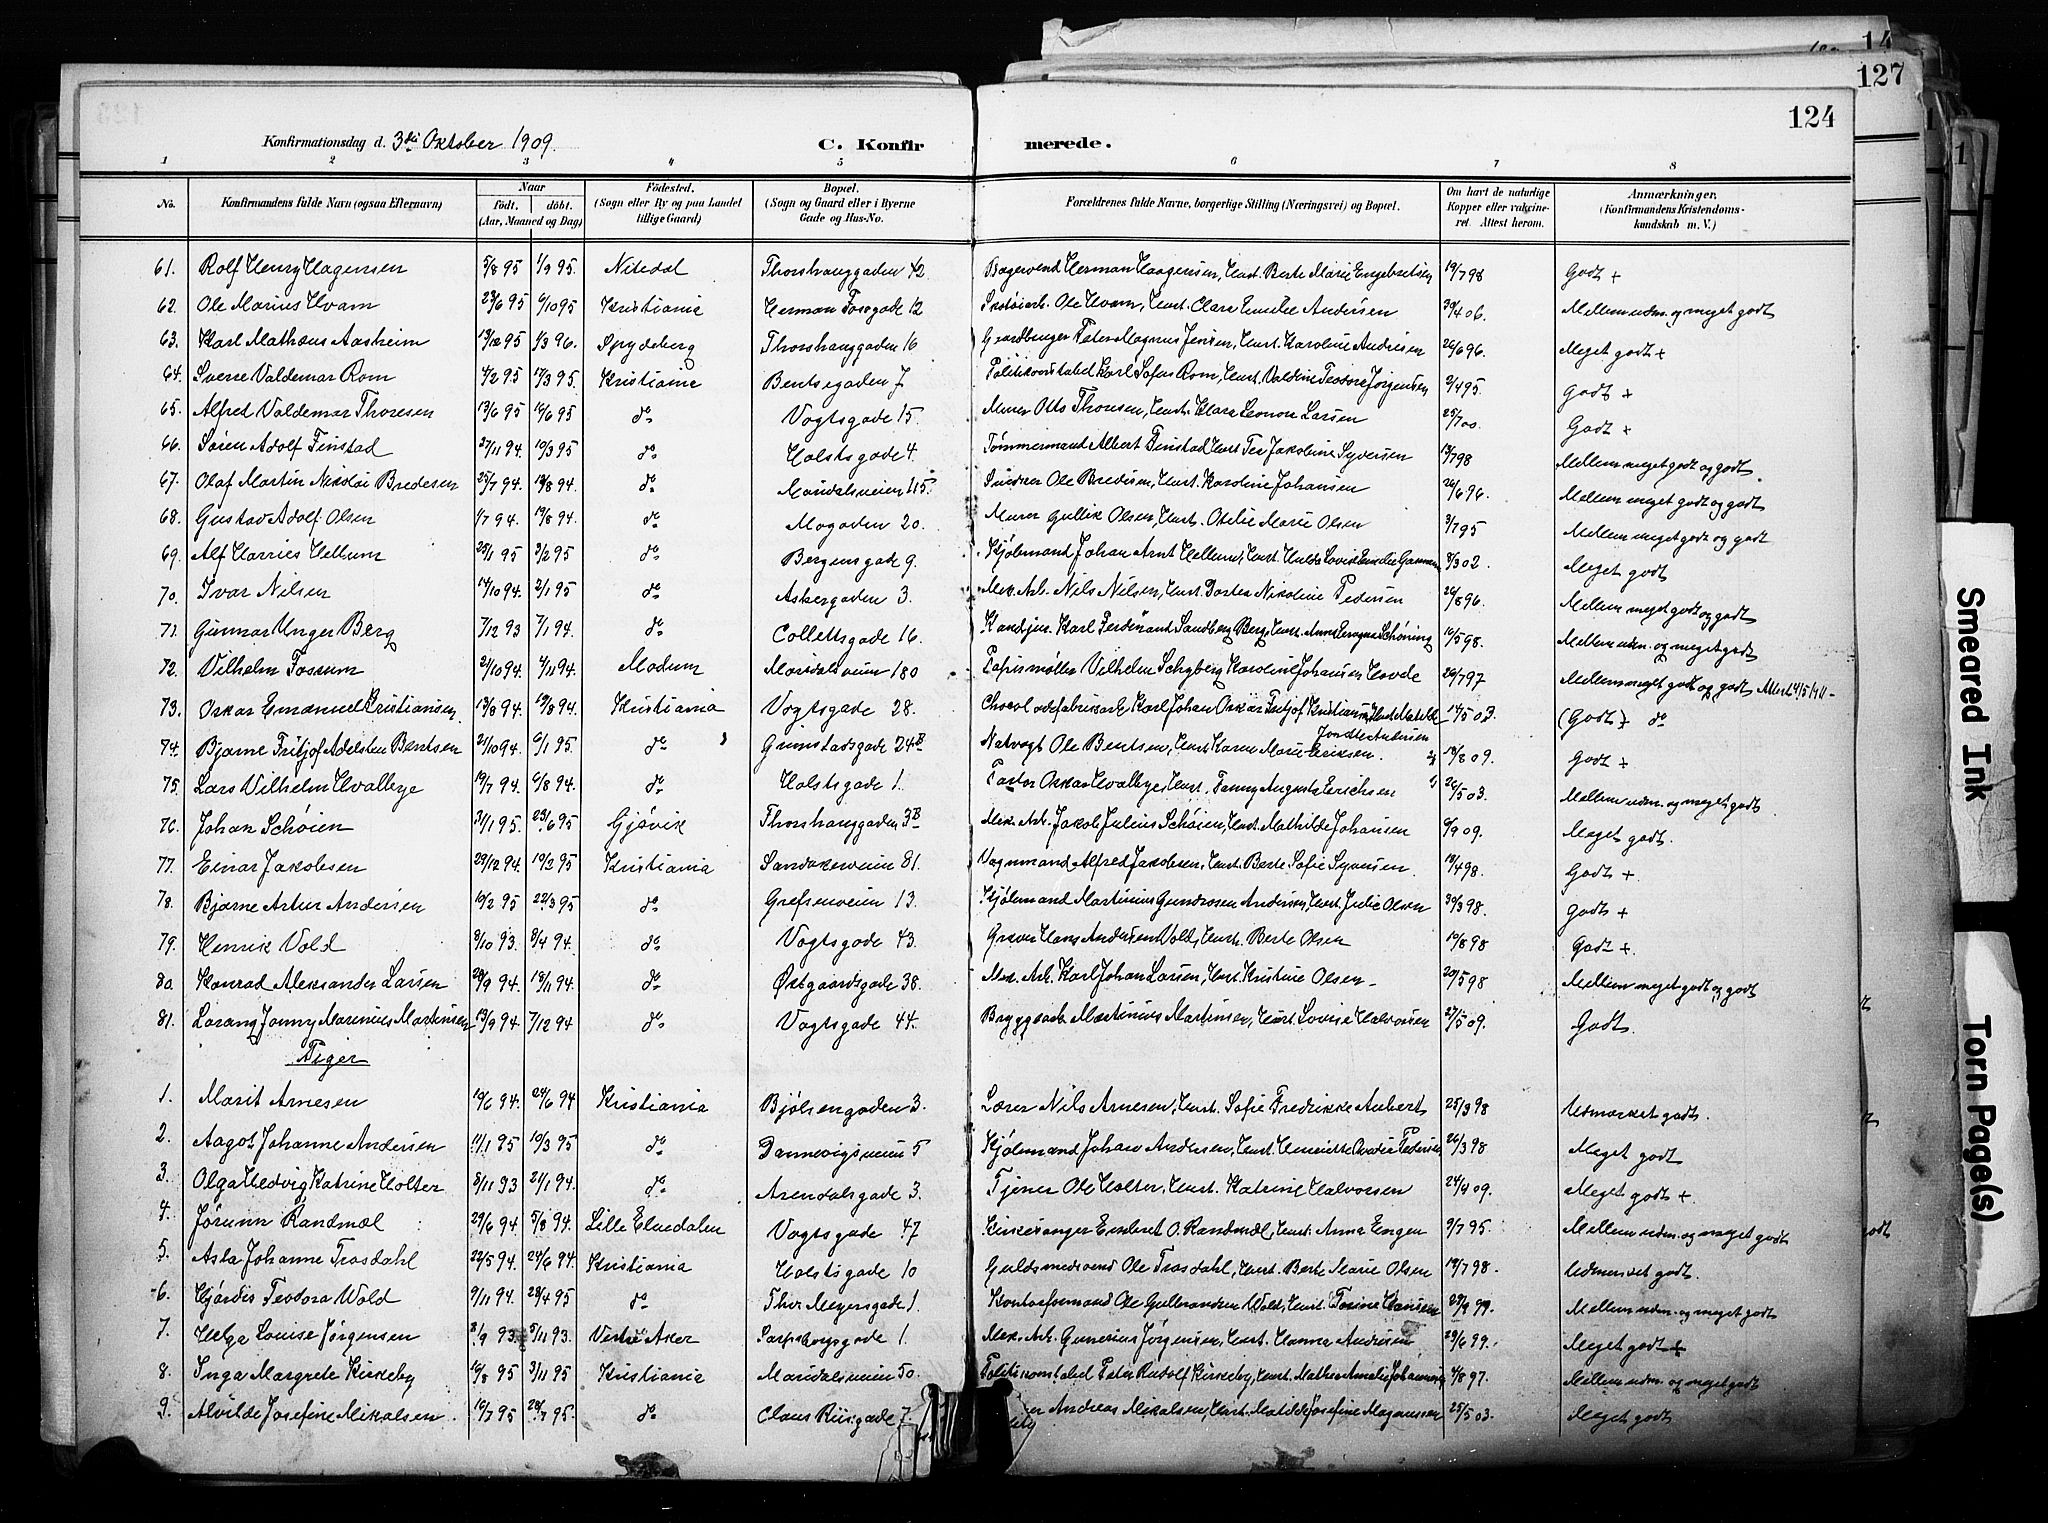 14
127
124
Konfirmationsdag d. 3die Oktober 1909. C. Konfirmerede.
1 2 3 4 5 6 7 8
No. Konfirmandens fulde Navn (ogsaa Efternavn) Naar født. døbt. (Aar, Maaned og Dag) Fødested. (Sogn eller By og paa Landet tillige Gaard) Bopæl. (Sogn og Gaard eller i Byerne Gade og Hus-No. Forældrenes fulde Navne, borgerlige Stilling (Næringsvei) og Bopæl. Om havt de naturlige Kopper eller vakcineret. Attest herom. Anmærkninger, (Konfirmandens Kristendomskundskab m. V.)
61. Rolf Henry Hagensen 5/8 95 1/9 95. Nitedal Thorshauggaden 42 Bagersvend Herman Haagensen, Hust. Berte Marie Engebretsen 19/7 98 Godt +
62. Ole Marius Hvam 23/6 95 6/10 95 Kristiania Herman Fossgade 12 Skotøiarb. Ole Hvam, Hust. Clara Emilie Andersen 30/4 06. Mellem udm. og meget godt
63. Karl Mathæus Aasheim 13/12 95 1/3 96. Spydeberg Thorshauggaden 16 Peter Magnus Jensen, Hust. Karoline Andresen 26/6 96. Meget godt +
64. Sverre Valdemar Rom 4/2 95 17/3 95. Kristiania Bentsegaden 7 Politikonstabel Karl Sofus Rom, Hust. Valdine Teodora Jørgensen 2/4 95 Godt +
65. Alfred Valdemar Thoresen 13/6 95 16/6 95 do Vogtsgade 15. Murer Otto Thoresen, Hust. Klara Leonora Larsen 25/7 00. Godt +
66. Søren Adolf Finstad 27/11 94. 10/3 95 do Holstsgade 4. Tømmermand Albert Finstad Hust. Tea Jakobine Syversen 13/7 98 Mellem meget godt og godt
67. Olaf Martin Nikolai Bredesen 25/7 94. 19/8 94. do Maridalsveien 115. Snedker Ole Bredesen, Hust. Karoline Johansen 26/6 96. Mellem meget godt og godt
68. Gustav Adolf Olsen 1/7 94. 19/8 94. do Mogaden 20. Murer Gullik Olsen, Hust. Otelie Marie Olsen 3/7 95 Mellem meget godt og godt
69. Alf Harries Hellum 25/1 95 3/2 95 do Bergensgade 9. Kjølemand Johan Arnt Hellum, Hust. Hulda Lovise Emilie 8/3 02. Meget godt
70. Ivar Nilsen 14/10 94. 2/1 95 do Askergaden 3. Mek. Arb. Nils Nilsen, Hust. Dortea Nikoline Pedersen 26/8 96. Mellem meget godt og godt
71. Gunnar Unger Berg 7/12 93 7/1 94. do Collettsgade 16. Kand. jur. Karl Ferdinand Sandberg Berg, Hust. Anna Schøning 16/5 98. Mellem udm. og meget godt
72. Vilhelm Fossum 21/10 94 4/11 94. Modum Maridalsveien 180 Papirsmøller Vilhelm Schyberg Karoline Johansen Hovde 26/7 97 Mellem meget godt og godt Attest 4/5/11
73. Oskar Emanuel Kristiansen, 13/8 94. 19/8 94. Kristiania Vogtsgade 28. Chocoladefabrikarb. Karl Johan Oskar Fritjof Kristiansen, Hust. Matilde Andersen 14/5 03. (Godt) + do
74. Bjarne Fritjof Adelsten Bentsen 21/10 94. 6/1 95. do Grimstadsgade 24B Natvagt Ole Bentsen, Hust. Karen Marie Eriksen. 13/8 09. Godt +
75. Lars Vilhelm Hvalbye 19/7 94. 6/8 94. do Holstsgade 1. Pastor Oskar Hvalbye, Hust. Fanny Augusta Erichsen 26/5 03. Mellem udm. og meget godt.
76. Johan Schøien 31/1 95. 23/6 95 Gjøvik Thorshauggaden 3B Mek. Arb. Jakob Julius Schøien, Hust. Mathilde Johansen 6/9 09. Meget godt.
77. Einar Jakobsen 29/12 94. 10/2 95 Kristiania Sandakerveien 81. Vognmand Alfred Jakobsen, Hust. Berte Sofie Syversen. 13/4 98. Godt +
78. Bjarne Artur Andersen 10/2 95 22/3 95 do Grefsenveien 13. Kjølemand Martinius Gundersen Andersen, Hust. Julie Olsen 30/3 98. Godt +
79. Henrik Vold 3/10 93. 8/4 94. do Vogtsgade 43. Graver Hans Andersen Vold, Hust. Berte Olsen 10/8 98 Godt +
80. Konrad Aleksander Larsen 28/9 94. 18/11 94. do Østgaardsgade 38. Mek. Arb. Karl Johan Larsen, Hust. Kristine Olsen 20/5 98 Mellem meget godt og godt
81. Lorang Jonny Marenius Martinsen 13/9 94. 7/12 94 do Vogtsgade 44. Bryggearb. Martinius Martinsen, Hust. Lovise Halvorsen 27/5 09. Godt.
Piger
1. Marit Arnesen 10/6 94. 24/6 94 Kristiania Bjølsengaden 3. Lærer Nils Arnesen, Hust. Sofie Fredrikke Aubert 25/3 98 Udmerket godt.
2. Aagot Johanne Andersen 11/1 95 10/3 95 do Dannevigsveien 5 Kjølemand Johan Andersen, Hust. Henriette Pedersen 26/3 98 Meget godt
3. Olga Hedvig Katrine Holter 8/11 93 21/1 94. do Arendalsgade 3. Tjener Ole Holter, Hust. Katrine Halvorsen 24/4 09. Meget godt +
4. Jørunn Randmæl 29/6 94 5/8 94. Lille Elvedalen Vogtsgade 47 Kirkesanger Enderet O. Randmæl, Hust. Anna Engen 9/7 95 Mellem udm. og meget godt
5. Asta Johanne Trosdahl 22/5 94. 24/6 94. Kristiania Holstsgade 10 Guldsmedsvend Ole Trosdahl, Hust. Berte Marie Olsen 19/7 98. Udmerket godt.
6. Hjørdis Teodora Wold 9/11 94. 28/4 95 do Thor Meyersgade 1. Kontorformand Ole Gulbrandsen Wold, Hust. Josine Hansen 29/9 99. Mellem udm. og meget godt
7. Helga Louise Jørgensen 8/9 93. 5/11 93. Vestre Aker Sarpsborgsgade 1. Mek. Arb. Gunerius Jørgensen, Hust. Hanna Andersen 29/6 99. Meget godt +
8. Inga Margrete Kirkeby 16/8 95 3/11 95 Kristiania Maridalsveien 50. Politikonstabel Peter Rudolf Kirkeby, Hust. Mathea Amalie Johannesen 4/8 97. Mellem udm. og meget godt
9. Alvilde Josefine Mikalsen. 16/7 95 28/7 95. do Claus Riisgade 7 Andreas Mikalsen, Hust. Matilde Josefine Magnussen 25/5 03. Meget godt
Smeared Ink
Torn Page(s)